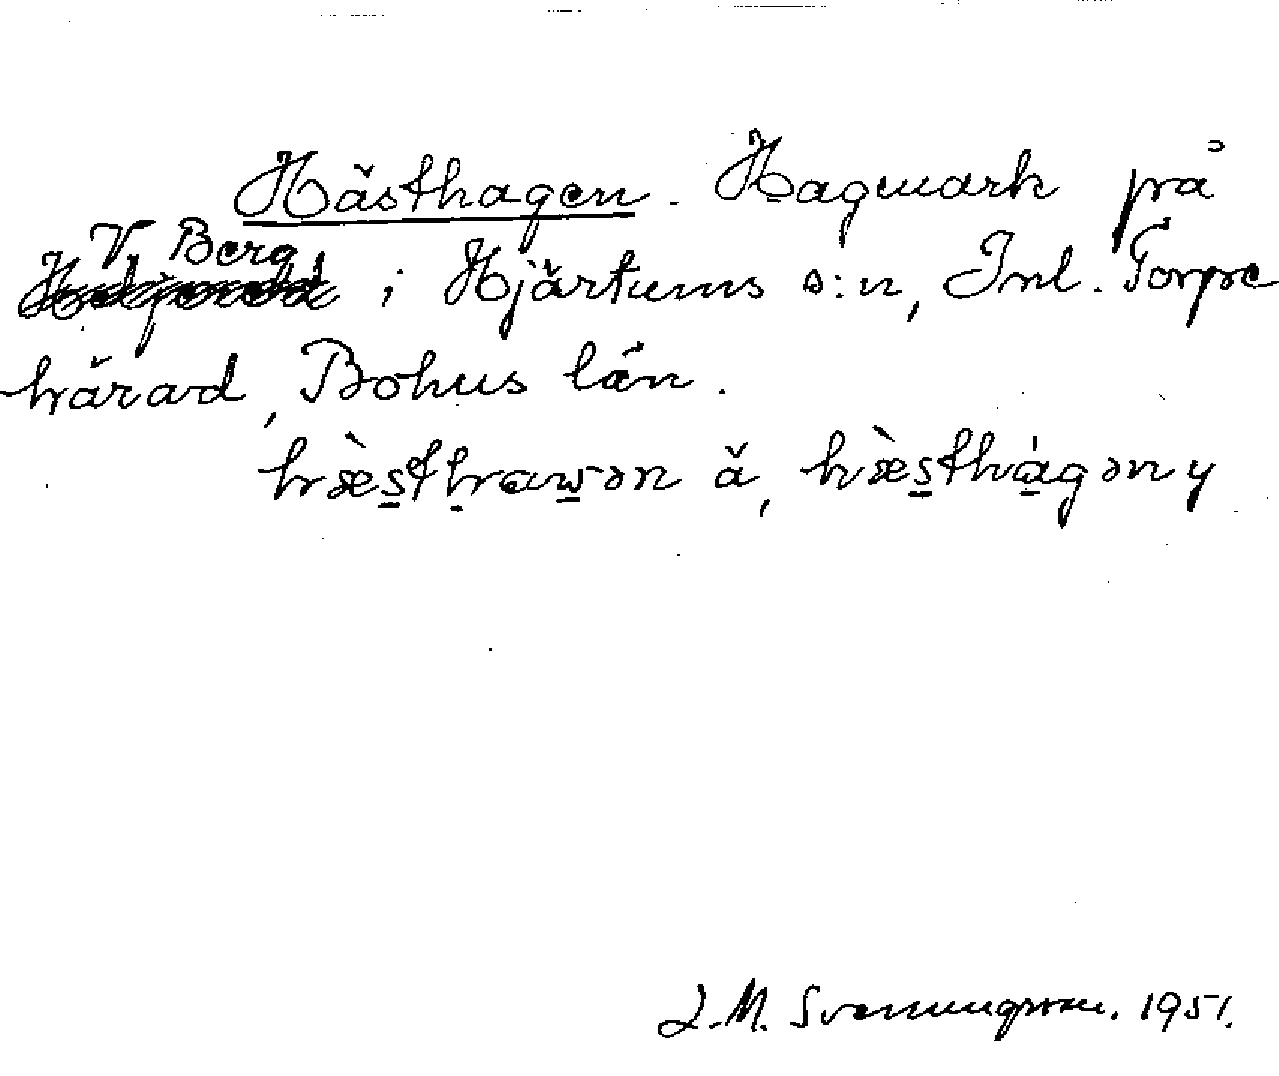 Hästhagen. Hagmark på
V. Berg
i Hjärtums s:n, Inl. Torpe
härad, Bohus län.
hæ̀sthawən ä, hæ̀sthágən y
J.M. Svenungsson. 1951.